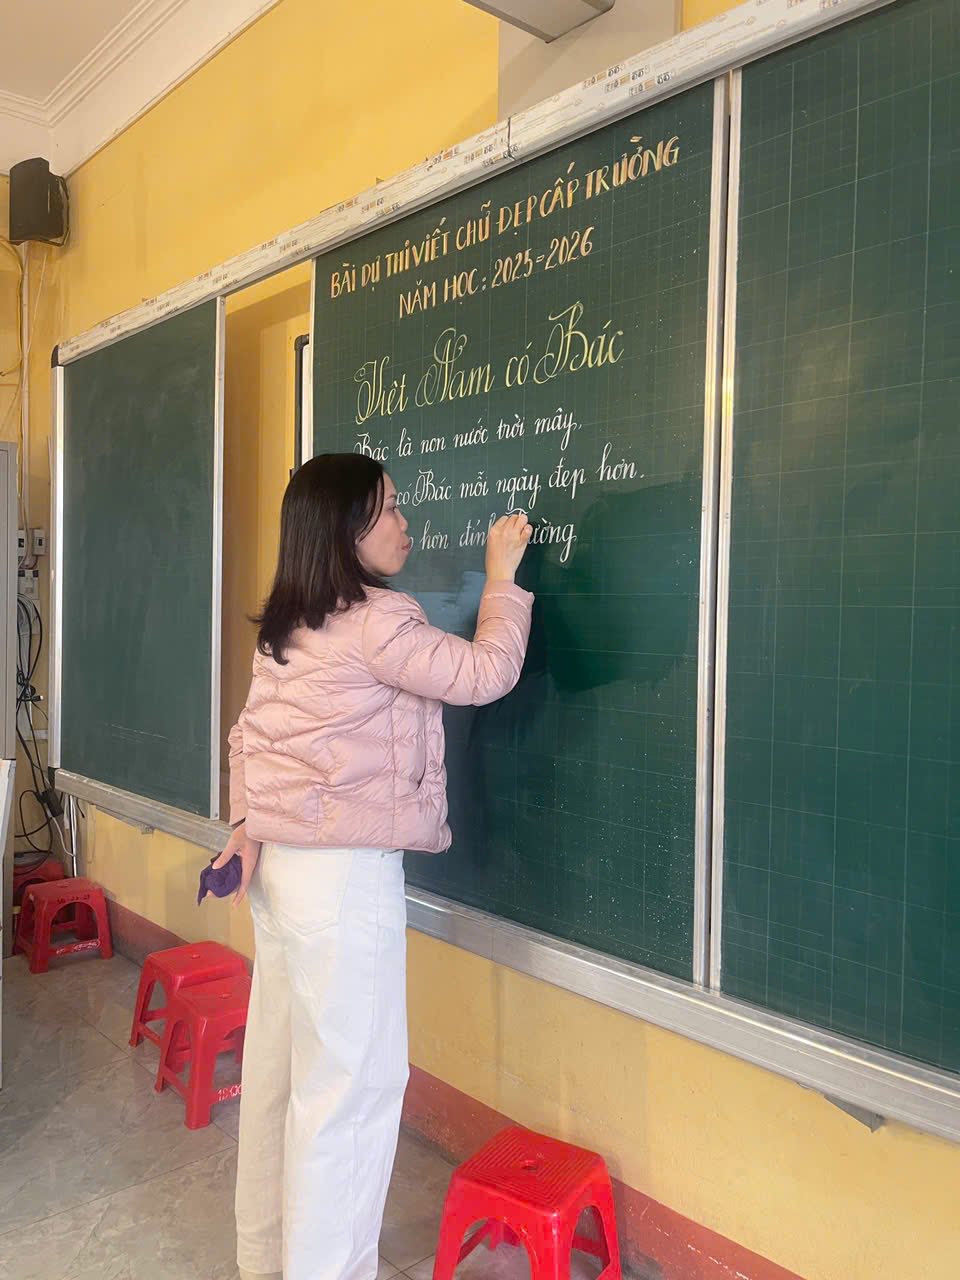 BÀI DỰ THI VIẾT CHỮ ĐẸP CẤP TRƯỜNG
NĂM HỌC: 2025-2026
Việt Nam có Bác
Bác là non nước trời mây,
có Bác mỗi ngày đẹp hơn.
hơn đỉnh Trường